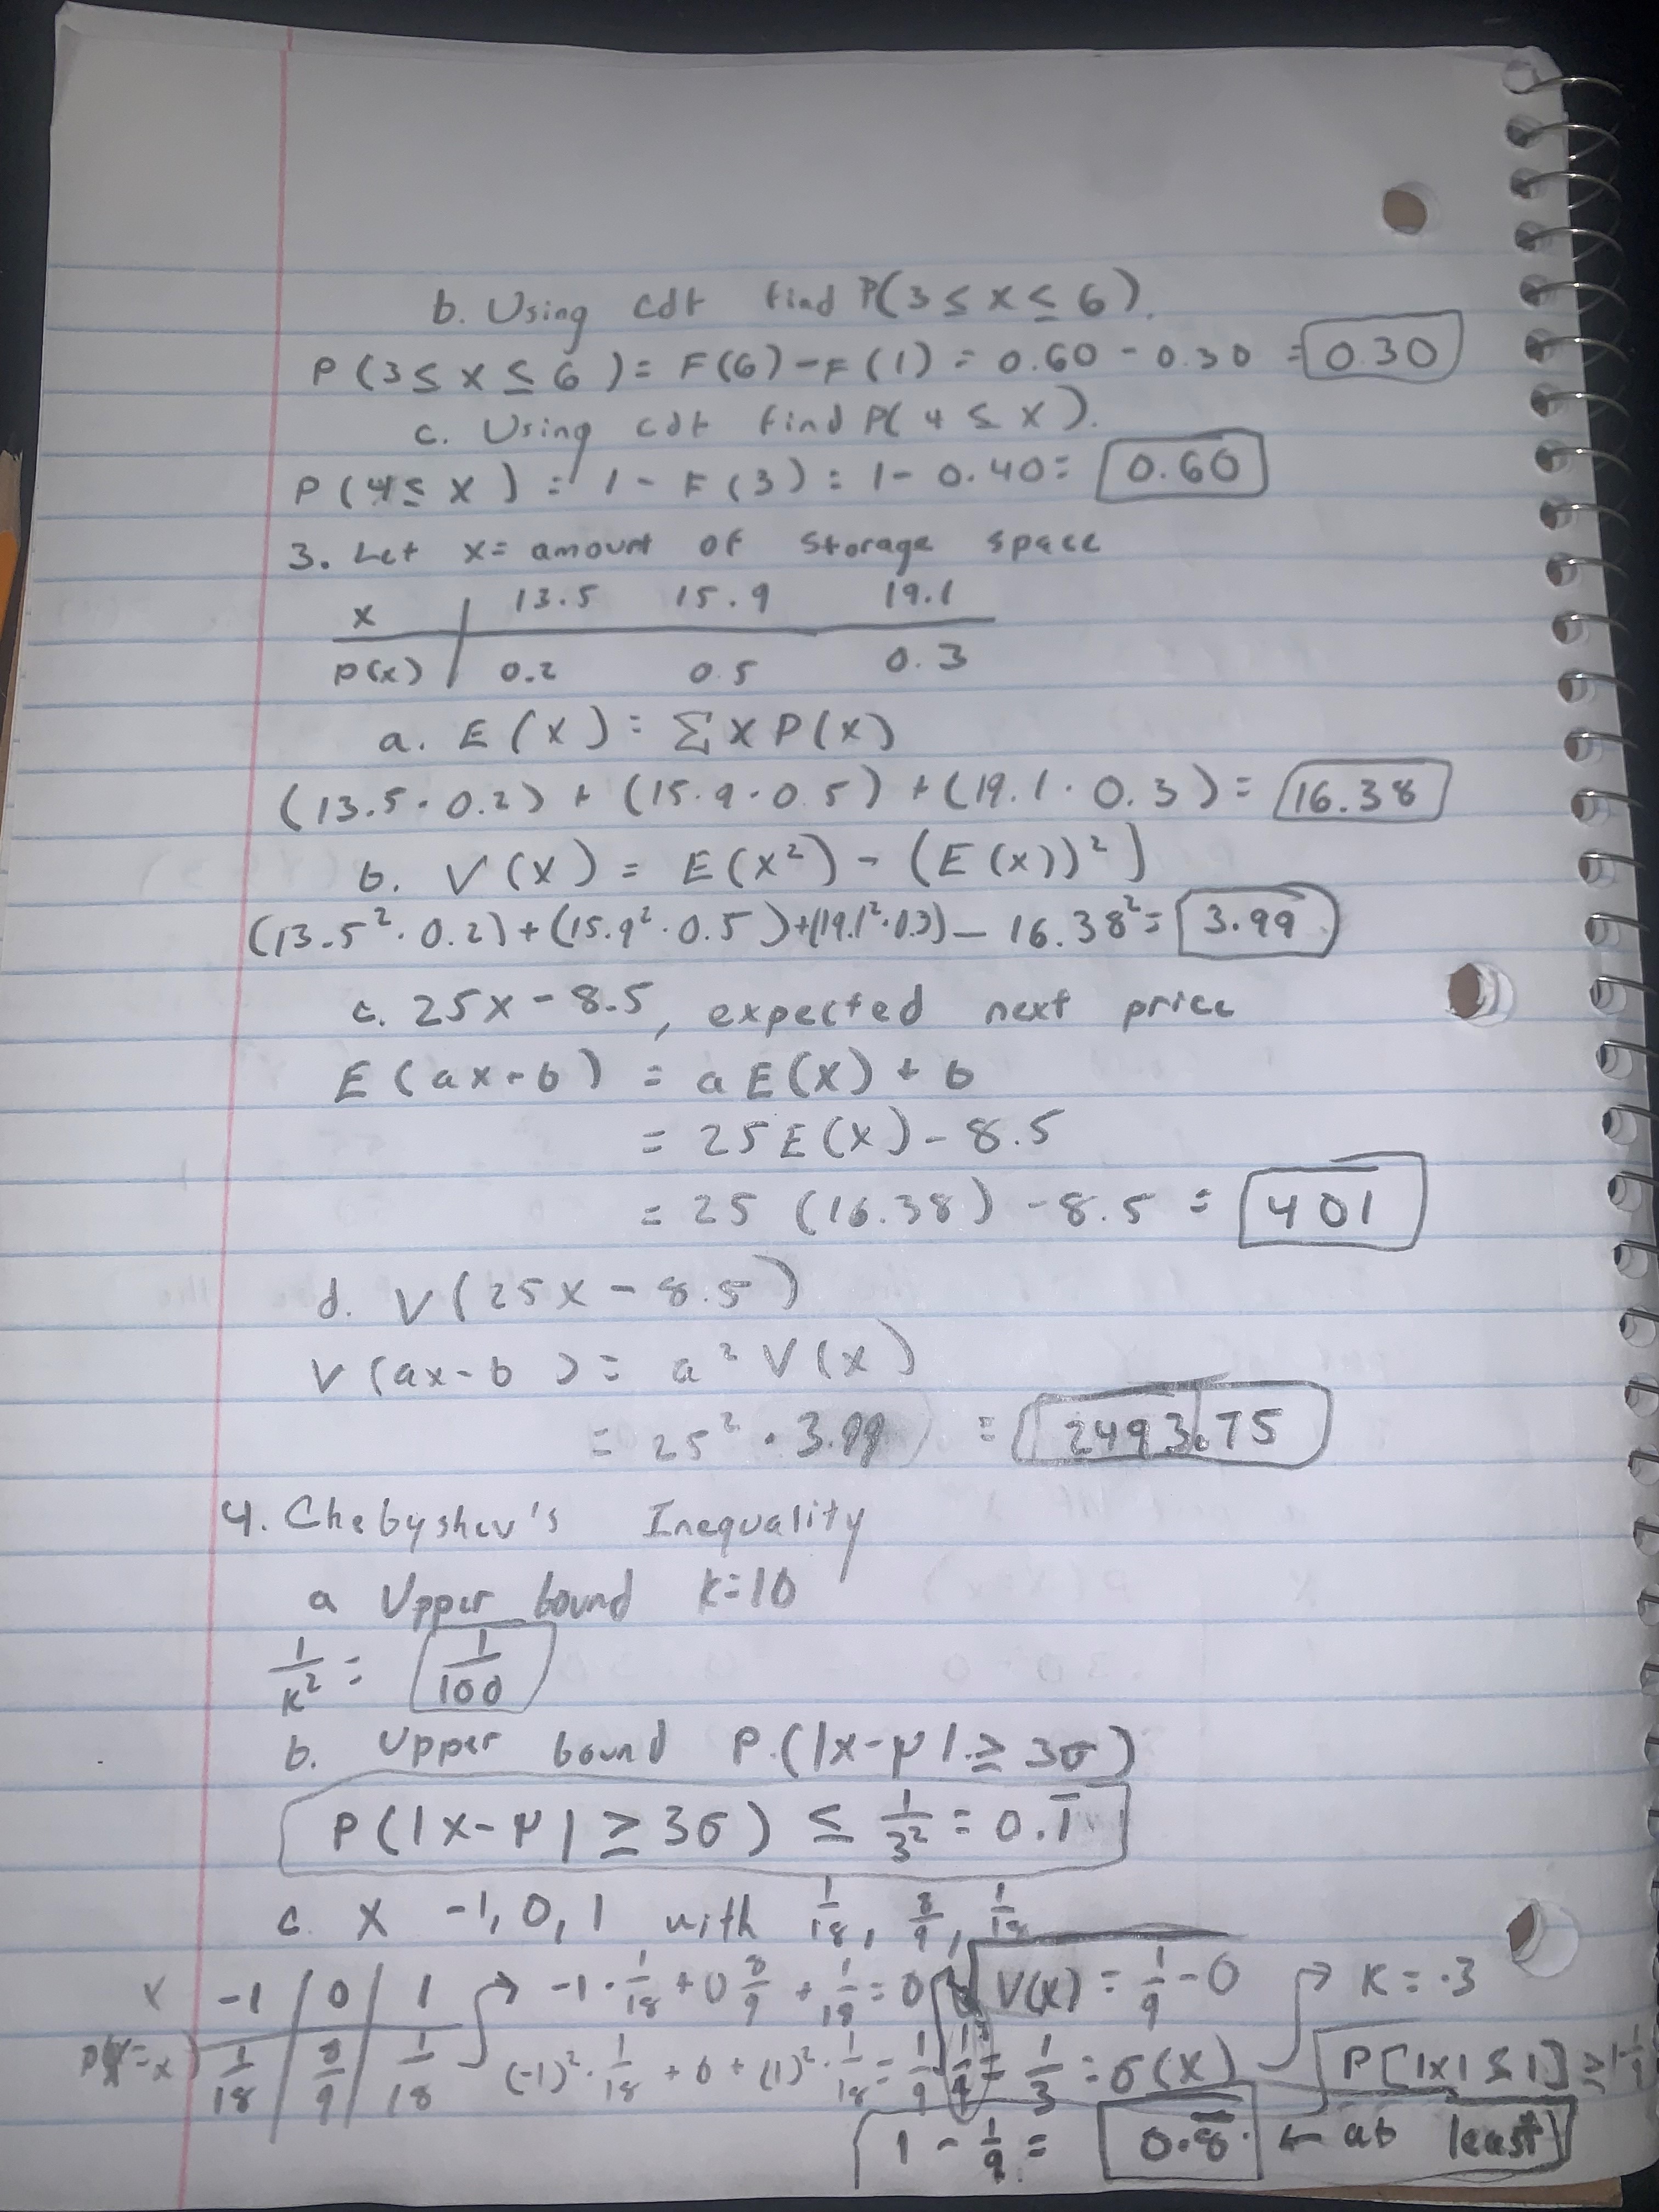 b. Using cdf find P(3 ≤ X ≤ 6).
P(3 ≤ X ≤ 6) = F(6) - F(1) = 0.60 - 0.30 = 0.30
c. Using cdf find P(4 ≤ X).
P(4 ≤ X) = 1 - F(3) = 1 - 0.40 = 0.60
3. Let x = amount of storage space
x | 13.5 15.9 19.1
p(x) | 0.2 0.5 0.3
a. E(X) = Σ X P(X)
(13.5 · 0.2) + (15.9 · 0.5) + (19.1 · 0.3) = 16.38
b. V(X) = E(X²) - (E(X))²]
(13.5² · 0.2) + (15.9² · 0.5) + (19.1² · 0.3) - 16.38² = 3.99
c. 25x - 8.5, expected next price
E(ax - b) = aE(X) + b
= 25E(X) - 8.5
= 25 (16.38) - 8.5 = 401
d. V(25X - 8.5)
V(ax - b) = a² V(X)
= 25² · 3.99 = 2493.75
4. Chebyshev's Inequality
a Upper bound K = 10
1/K² = 1/100
b. Upper bound P(|X-μ| ≥ 3σ)
P(|X-μ| ≥ 3σ) ≤ 1/3² = 0.1̅
c. X -1, 0, 1 with 1/18, 8/9, 1/18
x -1 | 0 | 1 → -1 · 1/18 + 0 8/9 + 1/18 = 0 V(X) = 1/9 - 0 → K = 3
1/18 | 8/9 | 1/18 (-1)² · 1/18 + 0 + (1)² · 1/18 = 1/9 = 1/3 = σ(X) P[|X| ≤ 1] ≥ 1 - 1/9
1 - 1/9 = 0.8̅ ← at least